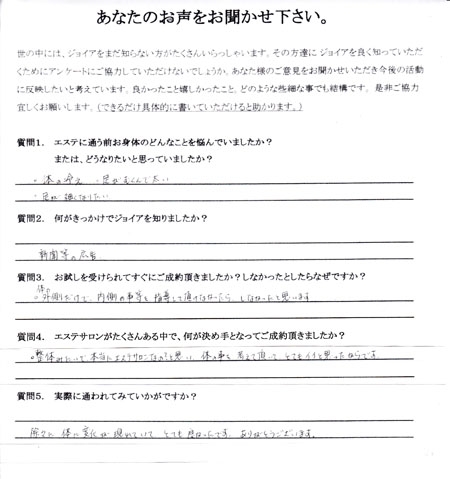 あなたのお声をお聞かせ下さい。
世の中には、ジョイアをまだ知らない方がたくさんいらっしゃいます。その方達に ジョイアを良く知っていただ
くためにアンケートにご協力していただけないでしょうか。あなた様のご意見をお聞かせいただき今後の活動
に反映したいと考えています。良かったこと嬉しかったこと、どのような些細な事でも結構です。是非ご協力
宜しくお願いします。(できるだけ具体的に書いていただけると助かります。)
質問1. エステに通う前お身体のどんなことを悩んでいましたか？
または、どうなりたいと思っていましたか？
・体の冷え ・足がむくんで太い
・足が細くなりたい
質問2. 何がきっかけでジョイアを知りましたか？
新聞等の広告
質問3. お試しを受けられてすぐにご成約頂きましたか？しなかったとしたらなぜですか？
体の
・外側だけで、内側の事等を指導して頂けなかったら、しなかったと思います
質問4. エステサロンがたくさんある中で、何が決め手となってご成約頂きましたか？
・整体みたいで、本当にエステサロンなのと思い、体の事を考えて頂いて とてもイイと思ったからです。
質問5. 実際に通われてみていかがですか？
徐々に 体に変化が現れていて とても です。ありがとうございます。